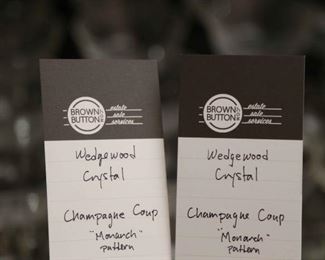 BROWN
BUTTON
estate
sale
services
Wedgewood
Crystal
Champagne Coup
"Monarch"
pattern
BROWN
BUTTON
estate
sale
services
Wedgewood
Crystal
Champagne Coup
"Monarch"
pattern